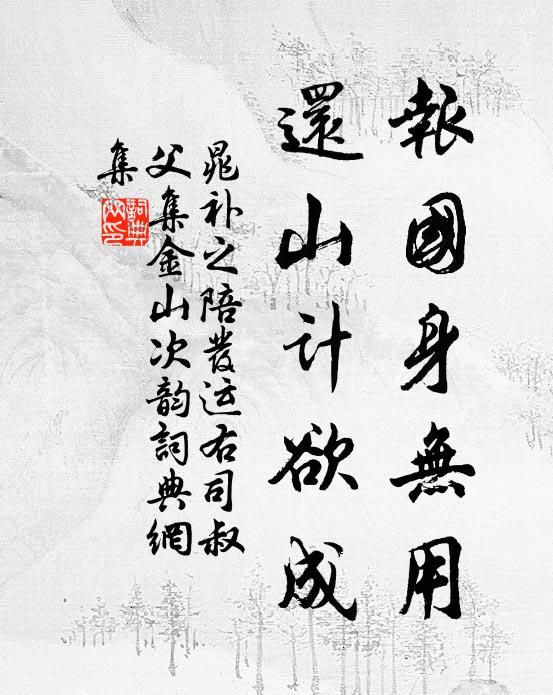 報國身無用
還山計欲成
晁补之陪發运右司叔
父集金山次韵詞典網
集
詞典網印